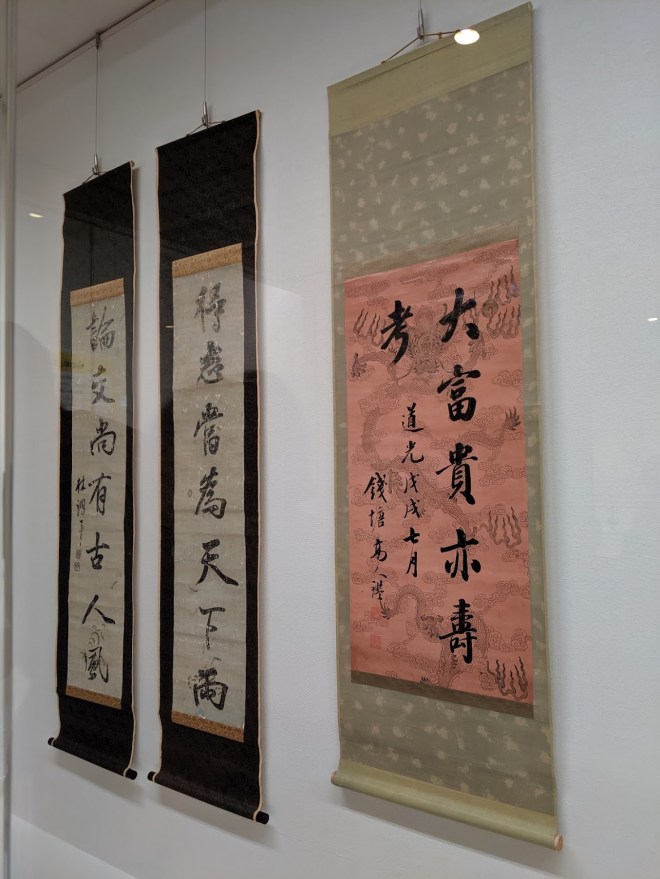 大富貴亦壽
考
道光戊戌七月
錢塘高人鑑
得意當為天下雨
論交尚有古人風